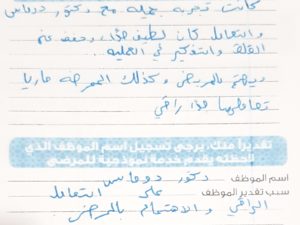 كانت تجربة جميلة مع دكتور دوماس
والتعامل كان لطيف جدا، وخفف عنى
القلق والتفكير في العملية
ويهتم بالمريض وكذلك الممرضة ماريا
تعاملها جدا راقي
تقديرا منك، يرجى تسجيل اسم الموظف الذي
لاحظته يقدم خدمة نموذجية للمرضى
اسم الموظف دكتور دوماس
سبب تقدير الموظف على التعامل
الراقي والاهتمام بالمريض